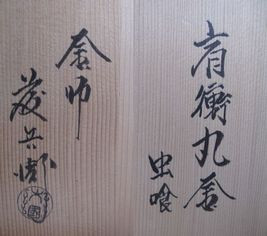 肩衝丸釜
虫喰
釜師
兵衛